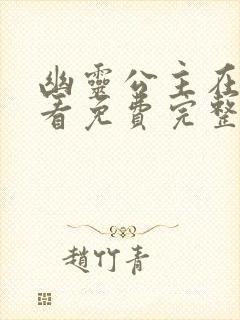 幽靈公主在
看免費完整
趙竹青